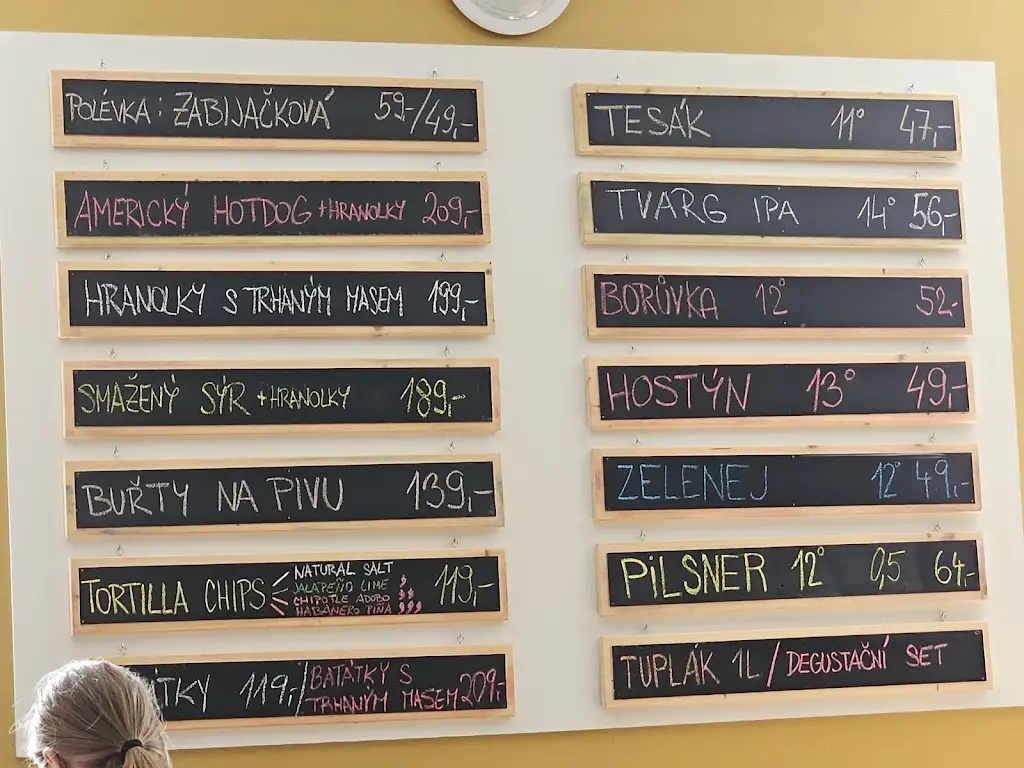 POLÉVKA: ZABIJAČKOVÁ 59-/49,-
AMERICKÝ HOTDOG +HRANOLKY 209,-
HRANOLKY S TRHANÝM MASEM 199,-
SMAŽENÝ SÝR +HRANOLKY 189,-
BUŘTY NA PIVU 139,-
TORTILLA CHIPS 119,-
NATURAL SALT
JALAPEÑO LIME
CHIPOTLE ADOBO
HABANERO PIÑA
119,-/
BATÁTKY S
TRHANÝM MASEM 209,-
TESÁK 11° 47,-
TVARG IPA 14° 56,-
BORŮVKA 12° 52,-
HOSTÝN 13° 49,-
ZELENEJ 12° 49,-
PILSNER 12° 0,5 64,-
TUPLÁK 1L / DEGUSTAČNÍ SET